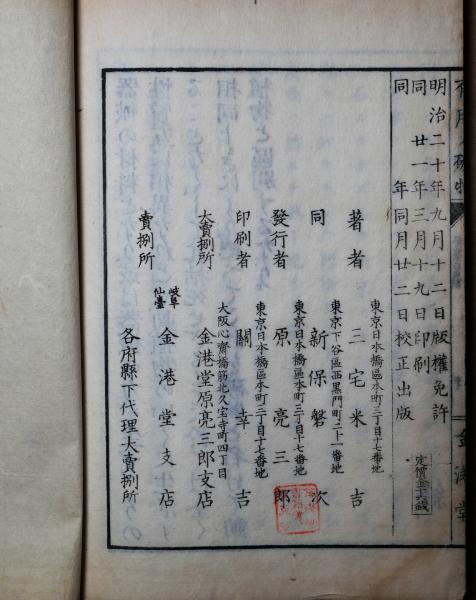 金港堂
明治二十年九月十二日版權免許
同廿一年三月十九日印刷
同年同月廿二日校正出版
定價金十六錢
東京日本橋區本町三丁目十七番地
著者 三宅米吉
東京下谷區西黑門町二十一番地
同 新保磐次
東京日本橋區本町三丁目十七番地
發行者 原亮三郎
東京日本橋區本町三丁目十七番地
印刷者 關幸吉
大阪心齋橋筋北久宝寺町四丁目
大賣捌所 金港堂原亮三郎支店
賣捌所 岐阜 仙臺 金港堂支店
各府縣下代理大賣捌所